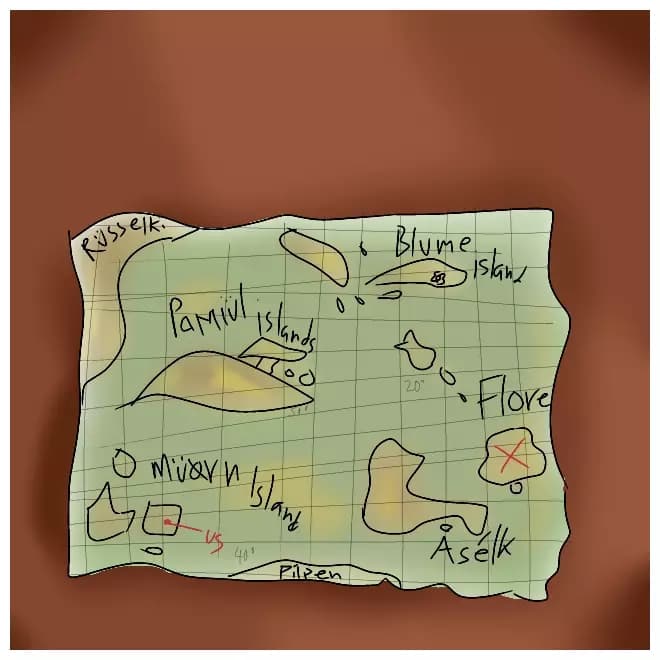 Rüsselk.
Blume
Island
Pamiül islands
20°
Flore
Müarn Island
us
Åsélk
40°
Pilzen